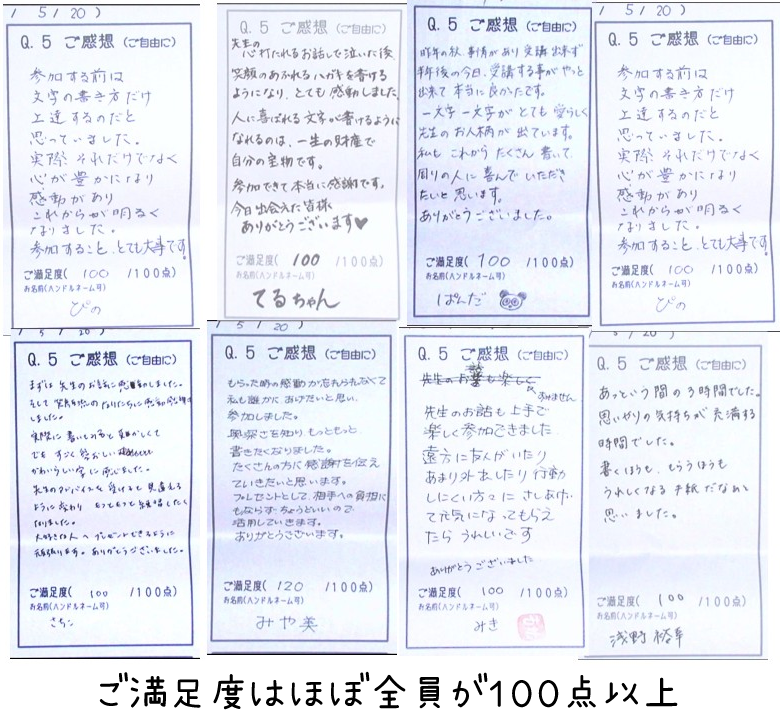 1 5 1 20 )
Q.5 ご感想 (ご自由に)
参加する前は
文字の書き方だけ
上達するのだと
思っていました。
実際それだけでなく
心が豊かになり
感動があり
これからが明るく
なりました。
参加すること、とても大事です。
ご満足度( 100 /100点)
お名前(ハンドルネーム可)
ぴの
Q.5 ご感想 (ご自由に)
先生の
心打たれるお話しで泣いた後、
笑顔のあふれるハガキを書ける
ようになり、とても感動しました。
人に喜ばれる文字が書けるように
なれるのは、一生の財産で
自分の宝物です。
参加できて本当に感謝です。
今日出会えた皆様
ありがとうございます♥
ご満足度( 100 /100点)
お名前(ハンドルネーム可)
てるちゃん
Q.5 ご感想 (ご自由に)
昨年の秋、事情があり受講出来ず
半年後の今日、受講する事がやっと
出来て本当に良かったです。
一文字一文字がとても愛らしく
先生のお人柄が出ています。
私も これからたくさん書いて
周りの人に喜んでいただき
たいと思います。
ありがとうございました。
ご満足度( 100 /100点)
お名前(ハンドルネーム可)
ぱんだ
1 5 1 20 )
Q.5 ご感想 (ご自由に)
参加する前は
文字の書き方だけ
上達するのだと
思っていました。
実際それだけでなく
心が豊かになり
感動があり
これからが明るく
なりました。
参加すること、とても大事です。
ご満足度( 100 /100点)
お名前(ハンドルネーム可)
ぴの
1 5 1 20 )
Q.5 ご感想 (ご自由に)
まずは先生のお話に しました。
そして 笑顔
しました。
実際に書いてみると 難しくて
でも すごく楽しい
かわいらしい字に 感じました。
先生のアドバイスを受けると見違える
ように変わり もっともっと練習したく
なりました。
大好きな人へプレゼントできるように
頑張ります。ありがとうございました。
ご満足度( 100 /100点)
お名前(ハンドルネーム可)
さちこ
1 5 1 20 )
Q.5 ご感想 (ご自由に)
もらった時の感動が忘れられなくて
私も誰かにあげたいと思い、
参加しました。
奥深さを知り、もっともっと、
書きたくなりました。
たくさんの方に感謝を伝え
ていきたいと思います。
プレゼントとして、相手への負担に
もならず、ちょうどいいので
活用していきます。
ありがとうございます。
ご満足度( 120 /100点)
お名前(ハンドルネーム可)
みや美
Q.5 ご感想 (ご自由に)
先生のお も楽しく
すみません
先生のお話も上手で
楽しく参加できました
遠方に友人がいたり
あまり外出したり行動
しにくい方々に さしあげ
て元気になってもらえ
たら うれしいです
ありがとうございました
ご満足度( 100 /100点)
お名前(ハンドルネーム可)
みき
5 1 20 )
Q.5 ご感想 (ご自由に)
あっという間の3時間でした。
思いやりの気持ちが充満する
時間でした。
書くほうも、もらうほうも
うれしくなる手紙だなあと
思いました。
ご満足度( 100 /100点)
お名前(ハンドルネーム可)
浅野
ご満足度はほぼ全員が100点以上